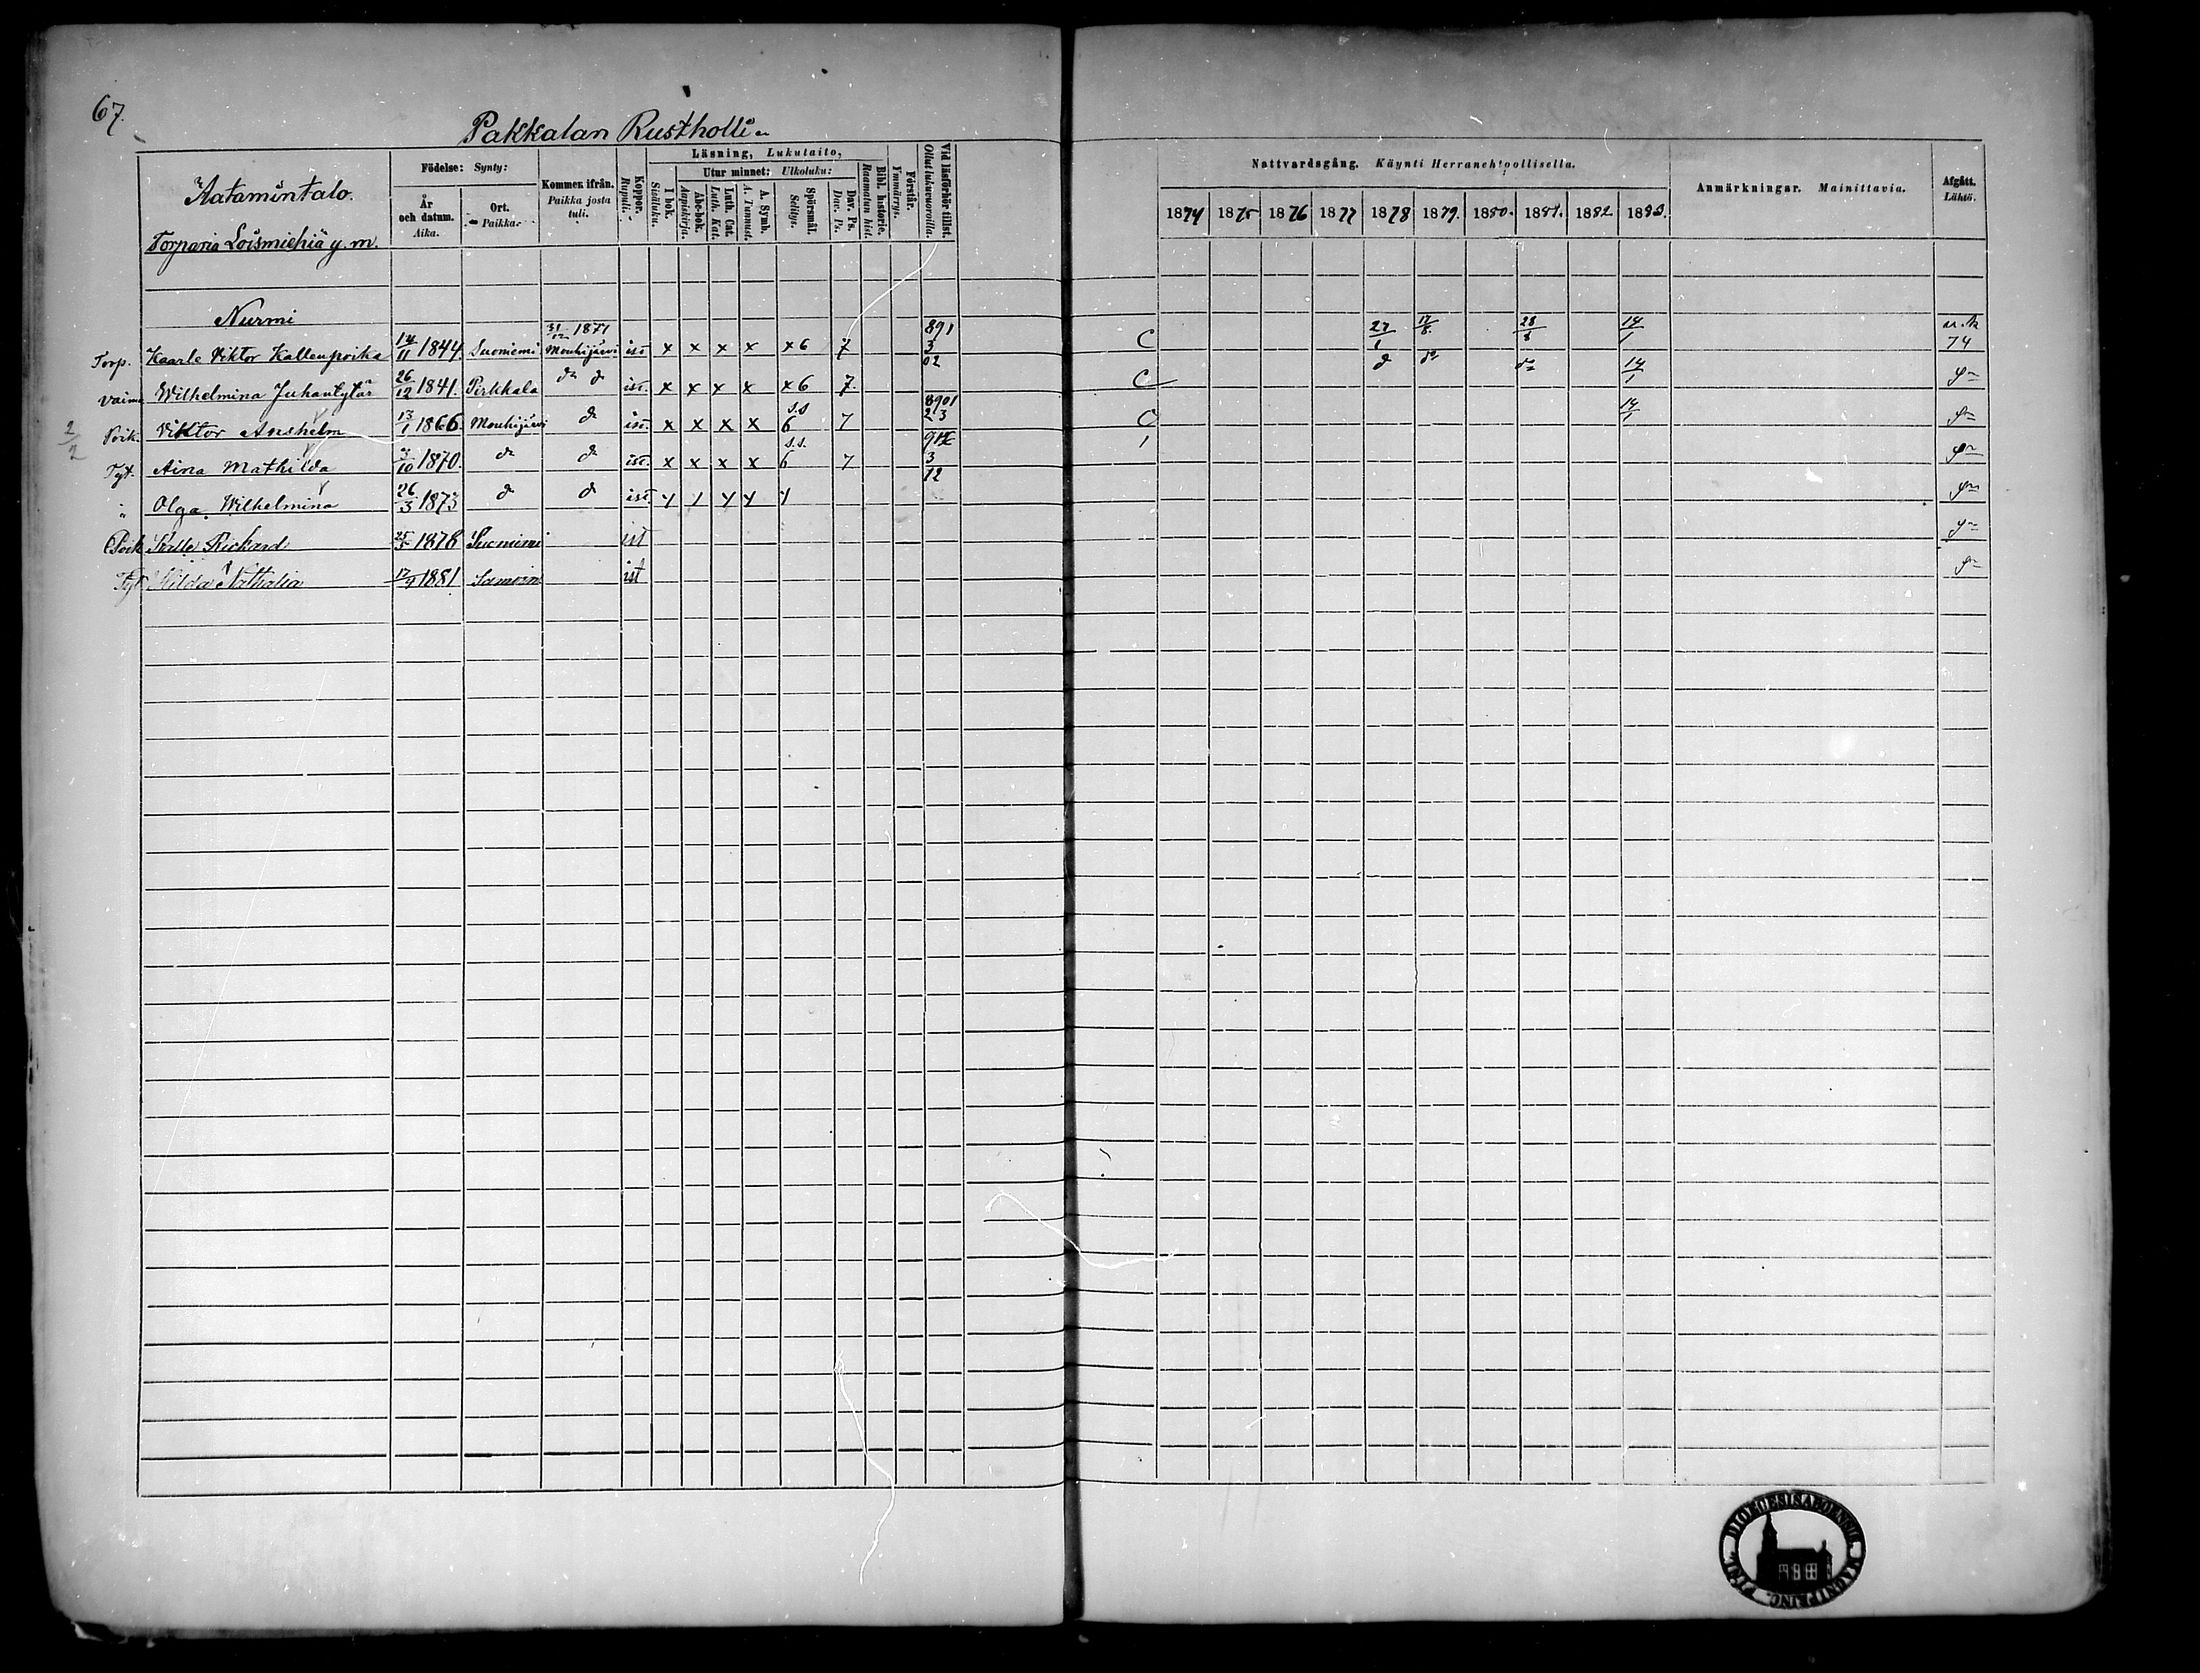 67.
Pakkalan Rustholli
Aatamintalo.
Torparia Loismiehiä y. m.
Födelse: Synty:
År och datum. Aika.
Ort. Paikka.
Kommen ifrån. Paikka josta tuli.
Koppor. Rupuli.
Läsning, Lukutaito,
I bok. Sisäluku.
Utur minnet: Ulkoluku:
Abc-bok. Aapiskirja.
Luth. Cat. Luth. Kat.
A. Symb. A. Tunnust.
Spörsmål. Selitys.
Dav. Ps. Dav. Ps.
Bibl. historie. Raamatun hist.
Förstår. Ymmärrys.
Vid läsförhör tillst. Ollut lukuvuoroilla.
Nattvardsgång. Käynti Herranehtoollisella.
1874 1875 1876 1877 1878 1879. 1880. 1881. 1882 1883.
Anmärkningar. Mainittavia.
Afgått. Lähtö.
Nurmi
Torp. Kaarle Viktor Kallenpoika 14/11 1844. Suoniemi 31/12 1871 Mouhijärvi ist x x x x x 6 7 891 3 02 C 27/1 17/8 28/8 14/1 74
Vaimo Wilhelmina Juhantytär 26/12 1841. Pirkkala ist. x x x x x 6 7. C 14/1
2/2 Poik. Viktor Anshelm 13/1 1866. Mouhijärvi ist. x x x x s.s 6 7 8901 23 C 14/1
Tyt. Aina Mathilda 1870. ist. x x x x s.s. 6 7 3 12
" Olga Wilhelmina 26/3 1873 ist.
Poik Kalle Rickard 1878 Suoniemi ist
Tyt Hilda Nathalia 1881 Samoin ist
DIOECESIS ABOENSIS MAGNI PRINC. FINL.